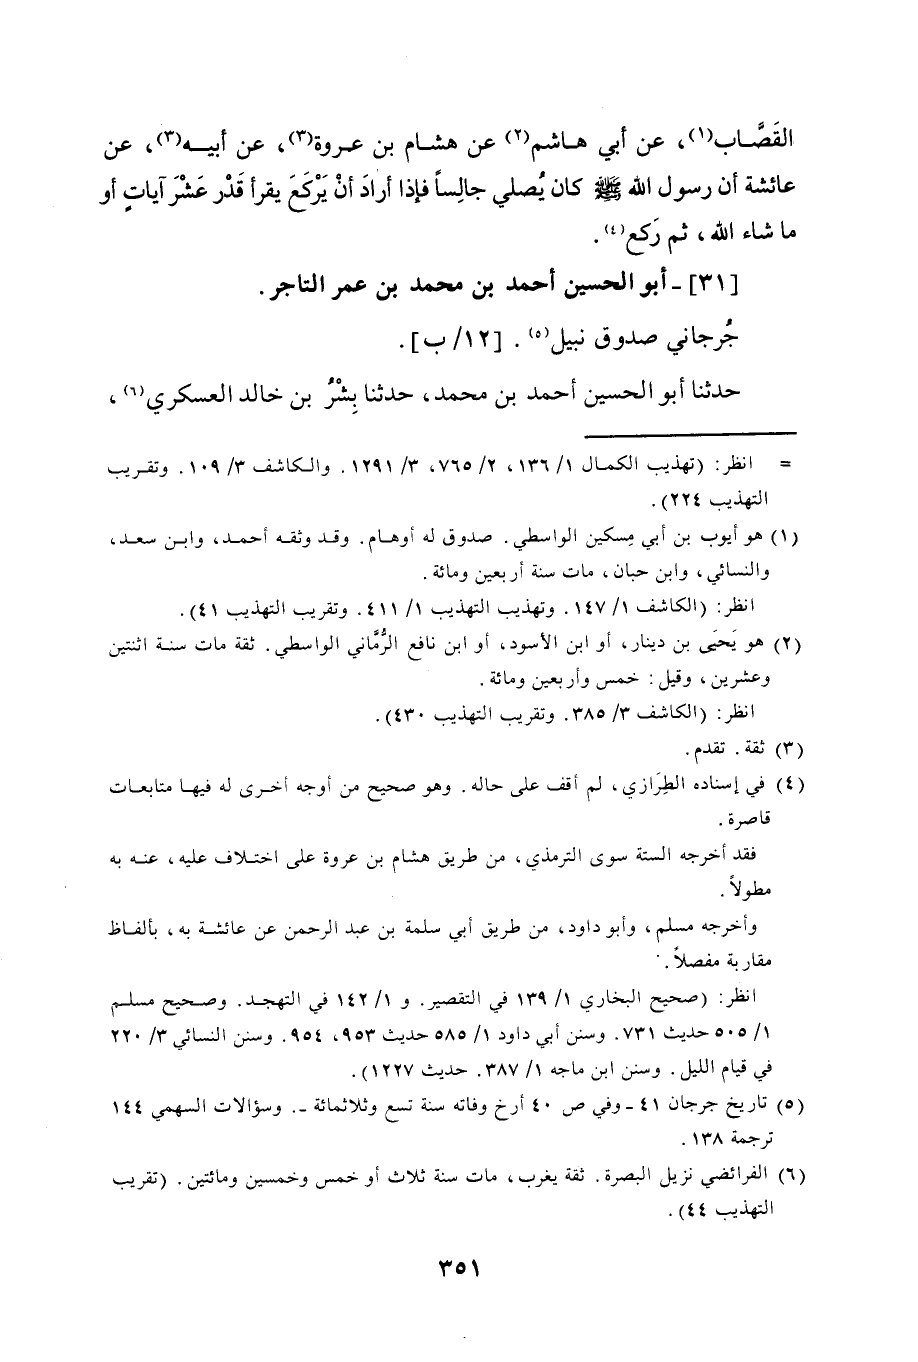 القَصَّاب(١)، عن أبي هاشم(٢) عن هشام بن عروة(٣)، عن أبيه(٣)، عن
عائشة أن رسول الله ﷺ كان يُصلي جالِساً فإذا أرادَ أنْ يَرْكَعَ يقرأ قَدْر عَشْرَ آياتٍ أو
ما شاء الله، ثم رَكع(٤).
[٣١] ـ أبو الحسين أحمد بن محمد بن عمر التاجر.
جُرجاني صدوق نبيل(٥). [١٢/ ب].
حدثنا أبو الحسين أحمد بن محمد، حدثنا بِشْرُ بن خالد العسكري(٦)،
= انظر: (تهذيب الكمال ١/ ١٣٦، ٢/ ٧٦٥، ٣/ ١٢٩١. والكاشف ٣/ ١٠٩. وتقريب
التهذيب ٢٢٤).
(١) هو أيوب بن أبي مِسكين الواسطي. صدوق له أوهام. وقد وثقه أحمد، وابن سعد،
والنسائي، وابن حبان، مات سنة أربعين ومائة.
انظر: (الكاشف ١/ ١٤٧. وتهذيب التهذيب ١/ ٤١١. وتقريب التهذيب ٤١).
(٢) هو يَحيَى بن دينار، أو ابن الأسود، أو ابن نافع الرُّمَّاني الواسطي. ثقة مات سنة اثنتين
وعشرين، وقيل: خمس وأربعين ومائة.
انظر: (الكاشف ٣/ ٣٨٥. وتقريب التهذيب ٤٣٠).
(٣) ثقة. تقدم.
(٤) في إسناده الطِرَازي، لم أقف على حاله. وهو صحيح من أوجه أخرى له فيها متابعات
قاصرة.
فقد أخرجه الستة سوى الترمذي، من طريق هشام بن عروة على اختلاف عليه، عنه به
مطولاً.
وأخرجه مسلم، وأبو داود، من طريق أبي سلمة بن عبد الرحمن عن عائشة به، بألفاظ
مقاربة مفصلاً.
انظر: (صحيح البخاري ١/ ١٣٩ في التقصير. و ١/ ١٤٢ في التهجد. وصحيح مسلم
١/ ٥٠٥ حديث ٧٣١. وسنن أبي داود ١/ ٥٨٥ حديث ٩٥٣، ٩٥٤. وسنن النسائي ٣/ ٢٢٠
في قيام الليل. وسنن ابن ماجه ١/ ٣٨٧. حديث ١٢٢٧).
(٥) تاريخ جرجان ٤١ ـ وفي ص ٤٠ أرخ وفاته سنة تسع وثلاثمائة ـ. وسؤالات السهمي ١٤٤
ترجمة ١٣٨.
(٦) الفرائضي نزيل البصرة. ثقة يغرب، مات سنة ثلاث أو خمس وخمسين ومائتين. (تقريب
التهذيب ٤٤).
٣٥١